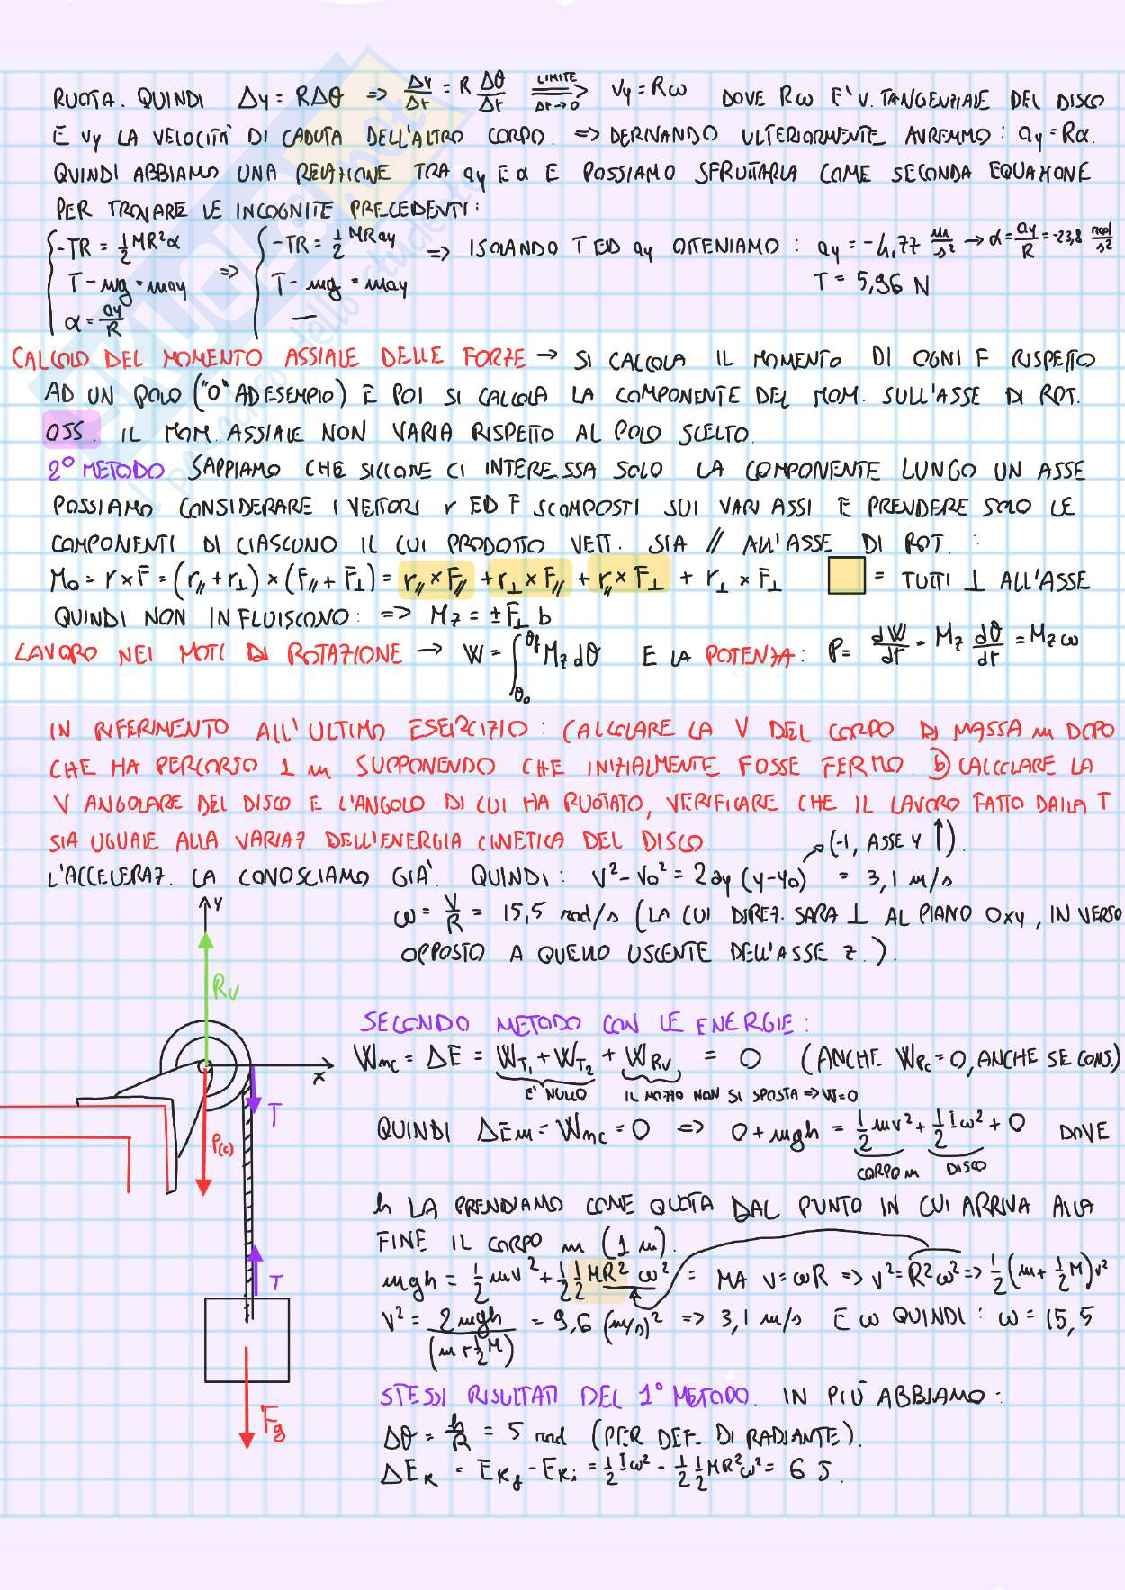 RUOTA. QUINDI Δy = RΔθ => Δy/Δt = R Δθ/Δt LIMITE Δt→0 => vy = Rω DOVE Rω E' V. TANGENZIALE DEL DISCO
E vy LA VELOCITÀ DI CADUTA DELL'ALTRO CORPO. => DERIVANDO ULTERIORMENTE AVREMMO: ay = Rα.
QUINDI ABBIAMO UNA RELAZIONE TRA ay E α E POSSIAMO SFRUTTARLA COME SECONDA EQUAZIONE
PER TROVARE LE INCOGNITE PRECEDENTI:
{ -TR = 1/2 MR²α => { -TR = 1/2 MRay => ISOLANDO T ED ay OTTENIAMO: ay = -4,77 m/s² → α = ay/R = -23,8 rad/s²
T - mg = may T - mg = may T = 5,96 N
α = ay/R —
CALCOLO DEL MOMENTO ASSIALE DELLE FORZE → SI CALCOLA IL MOMENTO DI OGNI F RISPETTO
AD UN POLO ("O" AD ESEMPIO) E POI SI CALCOLA LA COMPONENTE DEL MOM. SULL'ASSE DI ROT.
OSS. IL MOM. ASSIALE NON VARIA RISPETTO AL POLO SCELTO.
2° METODO SAPPIAMO CHE SICCOME CI INTERESSA SOLO LA COMPONENTE LUNGO UN ASSE
POSSIAMO CONSIDERARE I VETTORI r ED F SCOMPOSTI SUI VARI ASSI E PRENDERE SOLO LE
COMPONENTI DI CIASCUNO IL CUI PRODOTTO VETT. SIA // ALL'ASSE DI ROT. :
Mo = r × F = (r// + r⊥) × (F// + F⊥) = r// × F// + r⊥ × F// + r// × F⊥ + r⊥ × F⊥ = TUTTI ⊥ ALL'ASSE
QUINDI NON INFLUISCONO: => Mz = ± F⊥ b
LAVORO NEI MOTI DI ROTAZIONE → W = ∫θ0 θf Mz dθ E LA POTENZA: P = dW/dt = Mz dθ/dt = Mz ω
IN RIFERIMENTO ALL'ULTIMO ESERCIZIO: CALCOLARE LA V DEL CORPO DI MASSA m DOPO
CHE HA PERCORSO 1 m SUPPONENDO CHE INIZIALMENTE FOSSE FERMO. b) CALCOLARE LA
V ANGOLARE DEL DISCO E L'ANGOLO DI CUI HA RUOTATO, VERIFICARE CHE IL LAVORO FATTO DALLA T
SIA UGUALE ALLA VARIAZ DELL'ENERGIA CINETICA DEL DISCO
(-1, ASSE Y ↑).
L'ACCELERAZ. LA CONOSCIAMO GIÀ. QUINDI: v² - v0² = 2ay (y - y0) = 3,1 m/s
ω = v/R = 15,5 rad/s (LA CUI DIREZ. SARÀ ⊥ AL PIANO OXY, IN VERSO
OPPOSTO A QUELLO USCENTE DELL'ASSE Z.).
Y
Rv
X
T
P(c)
T
Fg
SECONDO METODO CON LE ENERGIE:
Wmc = ΔE = WT1 + WT2 + WRv = 0 (ANCHE WPc = 0, ANCHE SE CONS.)
E' NULLO IL MOZZO NON SI SPOSTA => W=0
QUINDI ΔEm = Wmc = 0 => 0 + mgh = 1/2 mv² + 1/2 Iω² + 0 DOVE
CORPO m DISCO
h LA PRENDIAMO COME QUOTA DAL PUNTO IN CUI ARRIVA ALLA
FINE IL CORPO m (1 m).
mgh = 1/2 mv² + 1/2 1/2 MR² ω² = MA v = ωR => v² = R²ω² => 1/2 (m + 1/2 M) v²
v² = 2mgh/(m + 1/2 M) = 9,6 (m/s)² => 3,1 m/s E ω QUINDI: ω = 15,5
STESSI RISULTATI DEL 1° METODO. IN PIÙ ABBIAMO:
Δθ = h/R = 5 rad (PER DEF. DI RADIANTE).
ΔEk = Ekf - Eki = 1/2 Iω² - 1/2 1/2 MR²ω² = 6 J.